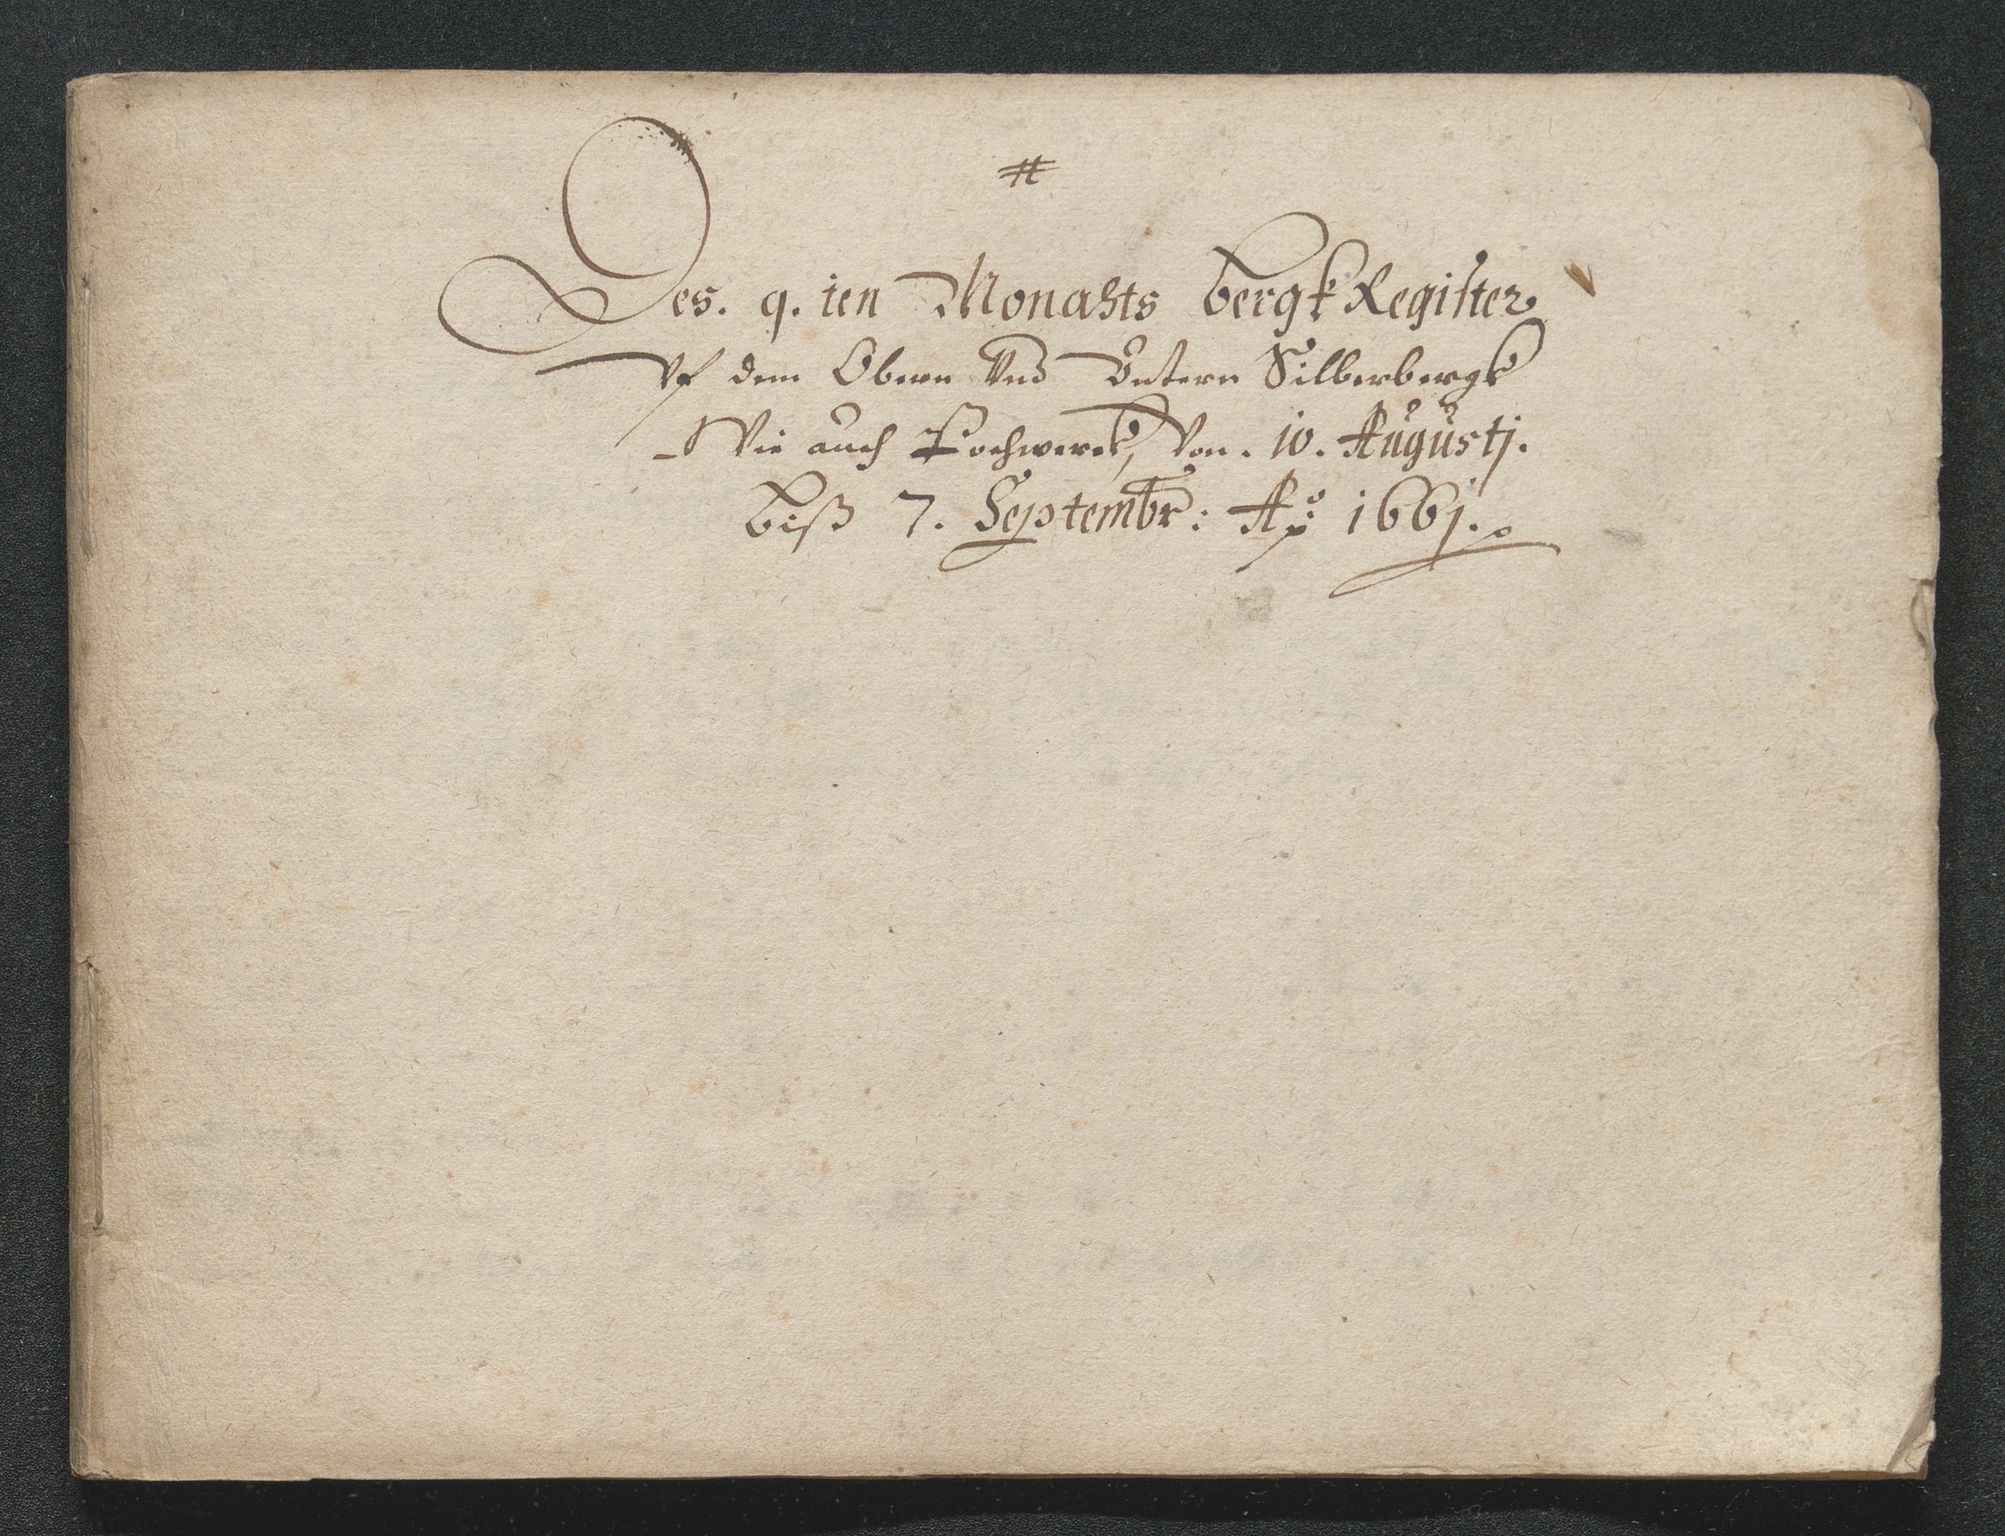 #
Des. 9. ten Monahts Bergk Register
Vf dem Obern Vnd Vntern Silberbergk
Wie auch Pochwerck, Von. 10. Augustj.
biß 7. Septembr: Ao: 1661.